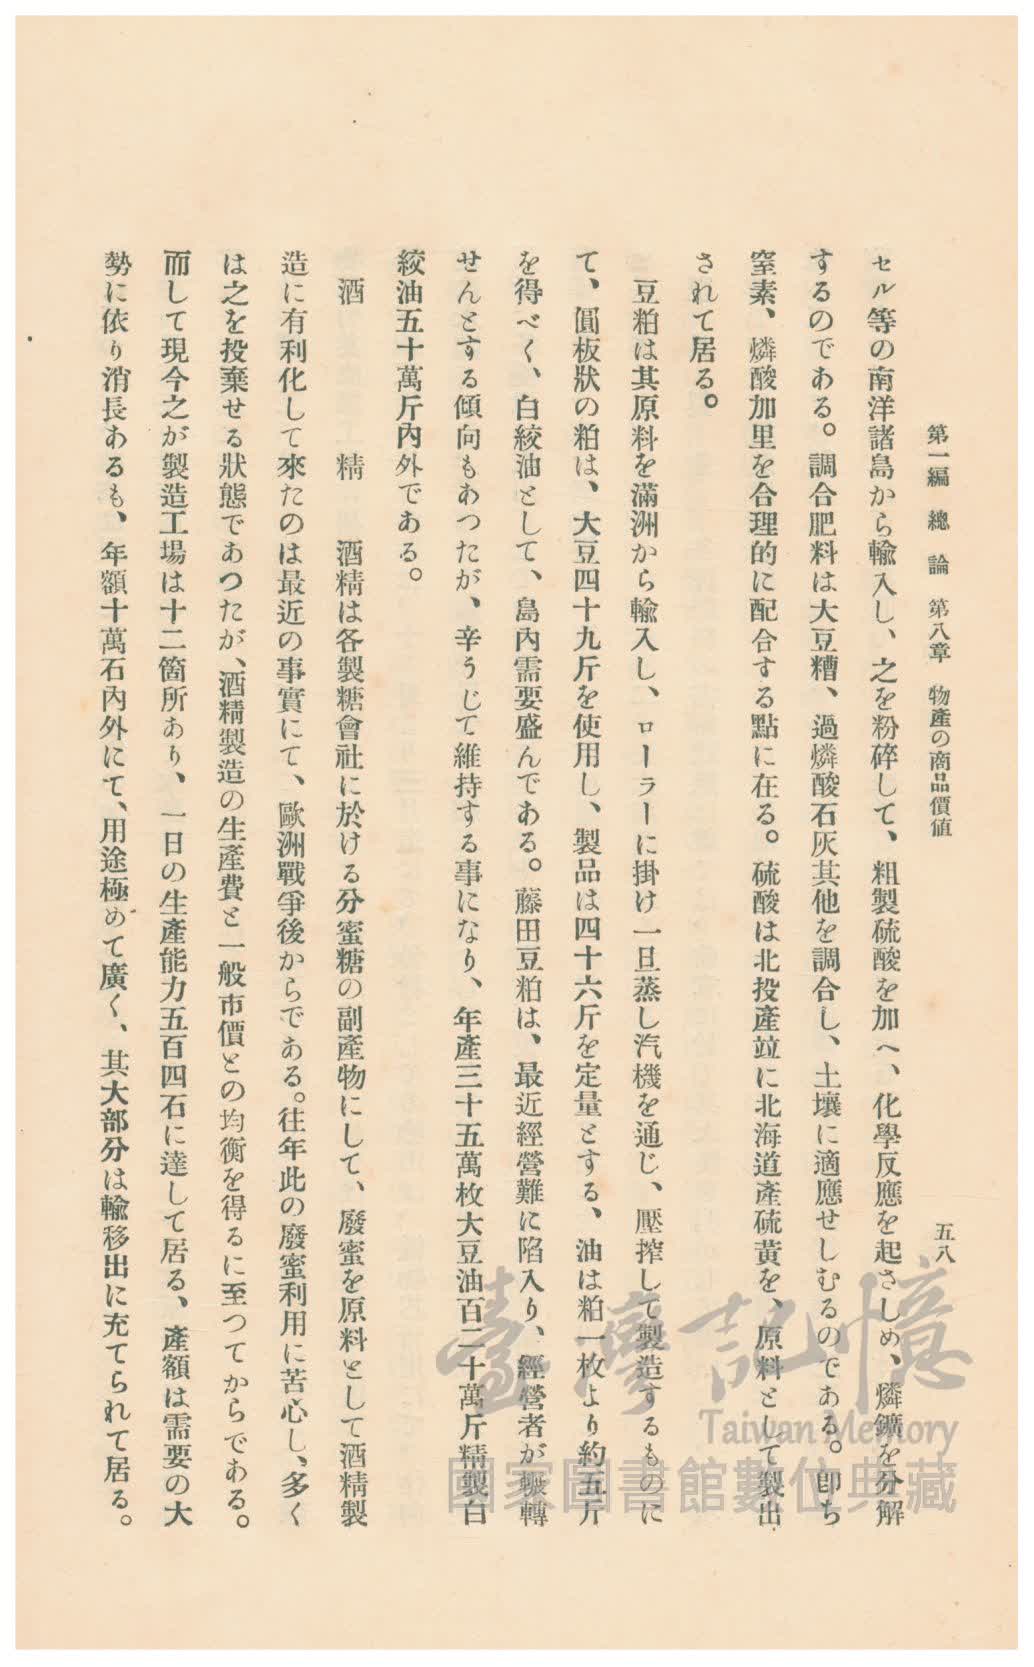 第一編　總　論　第八章　物產の商品價値
五八
セル等の南洋諸島から輸入し、之を粉碎して、粗製硫酸を加へ、化學反應を起さしめ、燐鑛を分解
するのである。調合肥料は大豆糟、過燐酸石灰其他を調合し、土壤に適應せしむるのである。卽ち
窒素、燐酸加里を合理的に配合する點に在る。硫酸は北投產竝に北海道產硫黃を、原料として製出
されて居る。
豆粕は其原料を滿洲から輸入し、ローラーに掛け一旦蒸し汽機を通じ、壓搾して製造するものに
て、圓板狀の粕は、大豆四十九斤を使用し、製品は四十六斤を定量とする、油は粕一枚より約五斤
を得べく、白絞油として、島內需要盛んである。藤田豆粕は、最近經營難に陷入り、經營者が輾轉
せんとする傾向もあつたが、辛うじて維持する事になり、年產三十五萬枚大豆油百二十萬斤精製白
絞油五十萬斤內外である。
酒　精　酒精は各製糖會社に於ける分蜜糖の副產物にして、廢蜜を原料として酒精製
造に有利化して來たのは最近の事實にて、歐洲戰爭後からである。往年此の廢蜜利用に苦心し、多く
は之を投棄せる狀態であつたが、酒精製造の生產費と一般市價との均衡を得るに至つてからである。
而して現今之が製造工場は十二箇所あり、一日の生產能力五百四石に達して居る、產額は需要の大
勢に依り消長あるも、年額十萬石內外にて、用途極めて廣く、其大部分は輸移出に充てられて居る。
臺灣記憶
Taiwan Memory
國家圖書館數位典藏